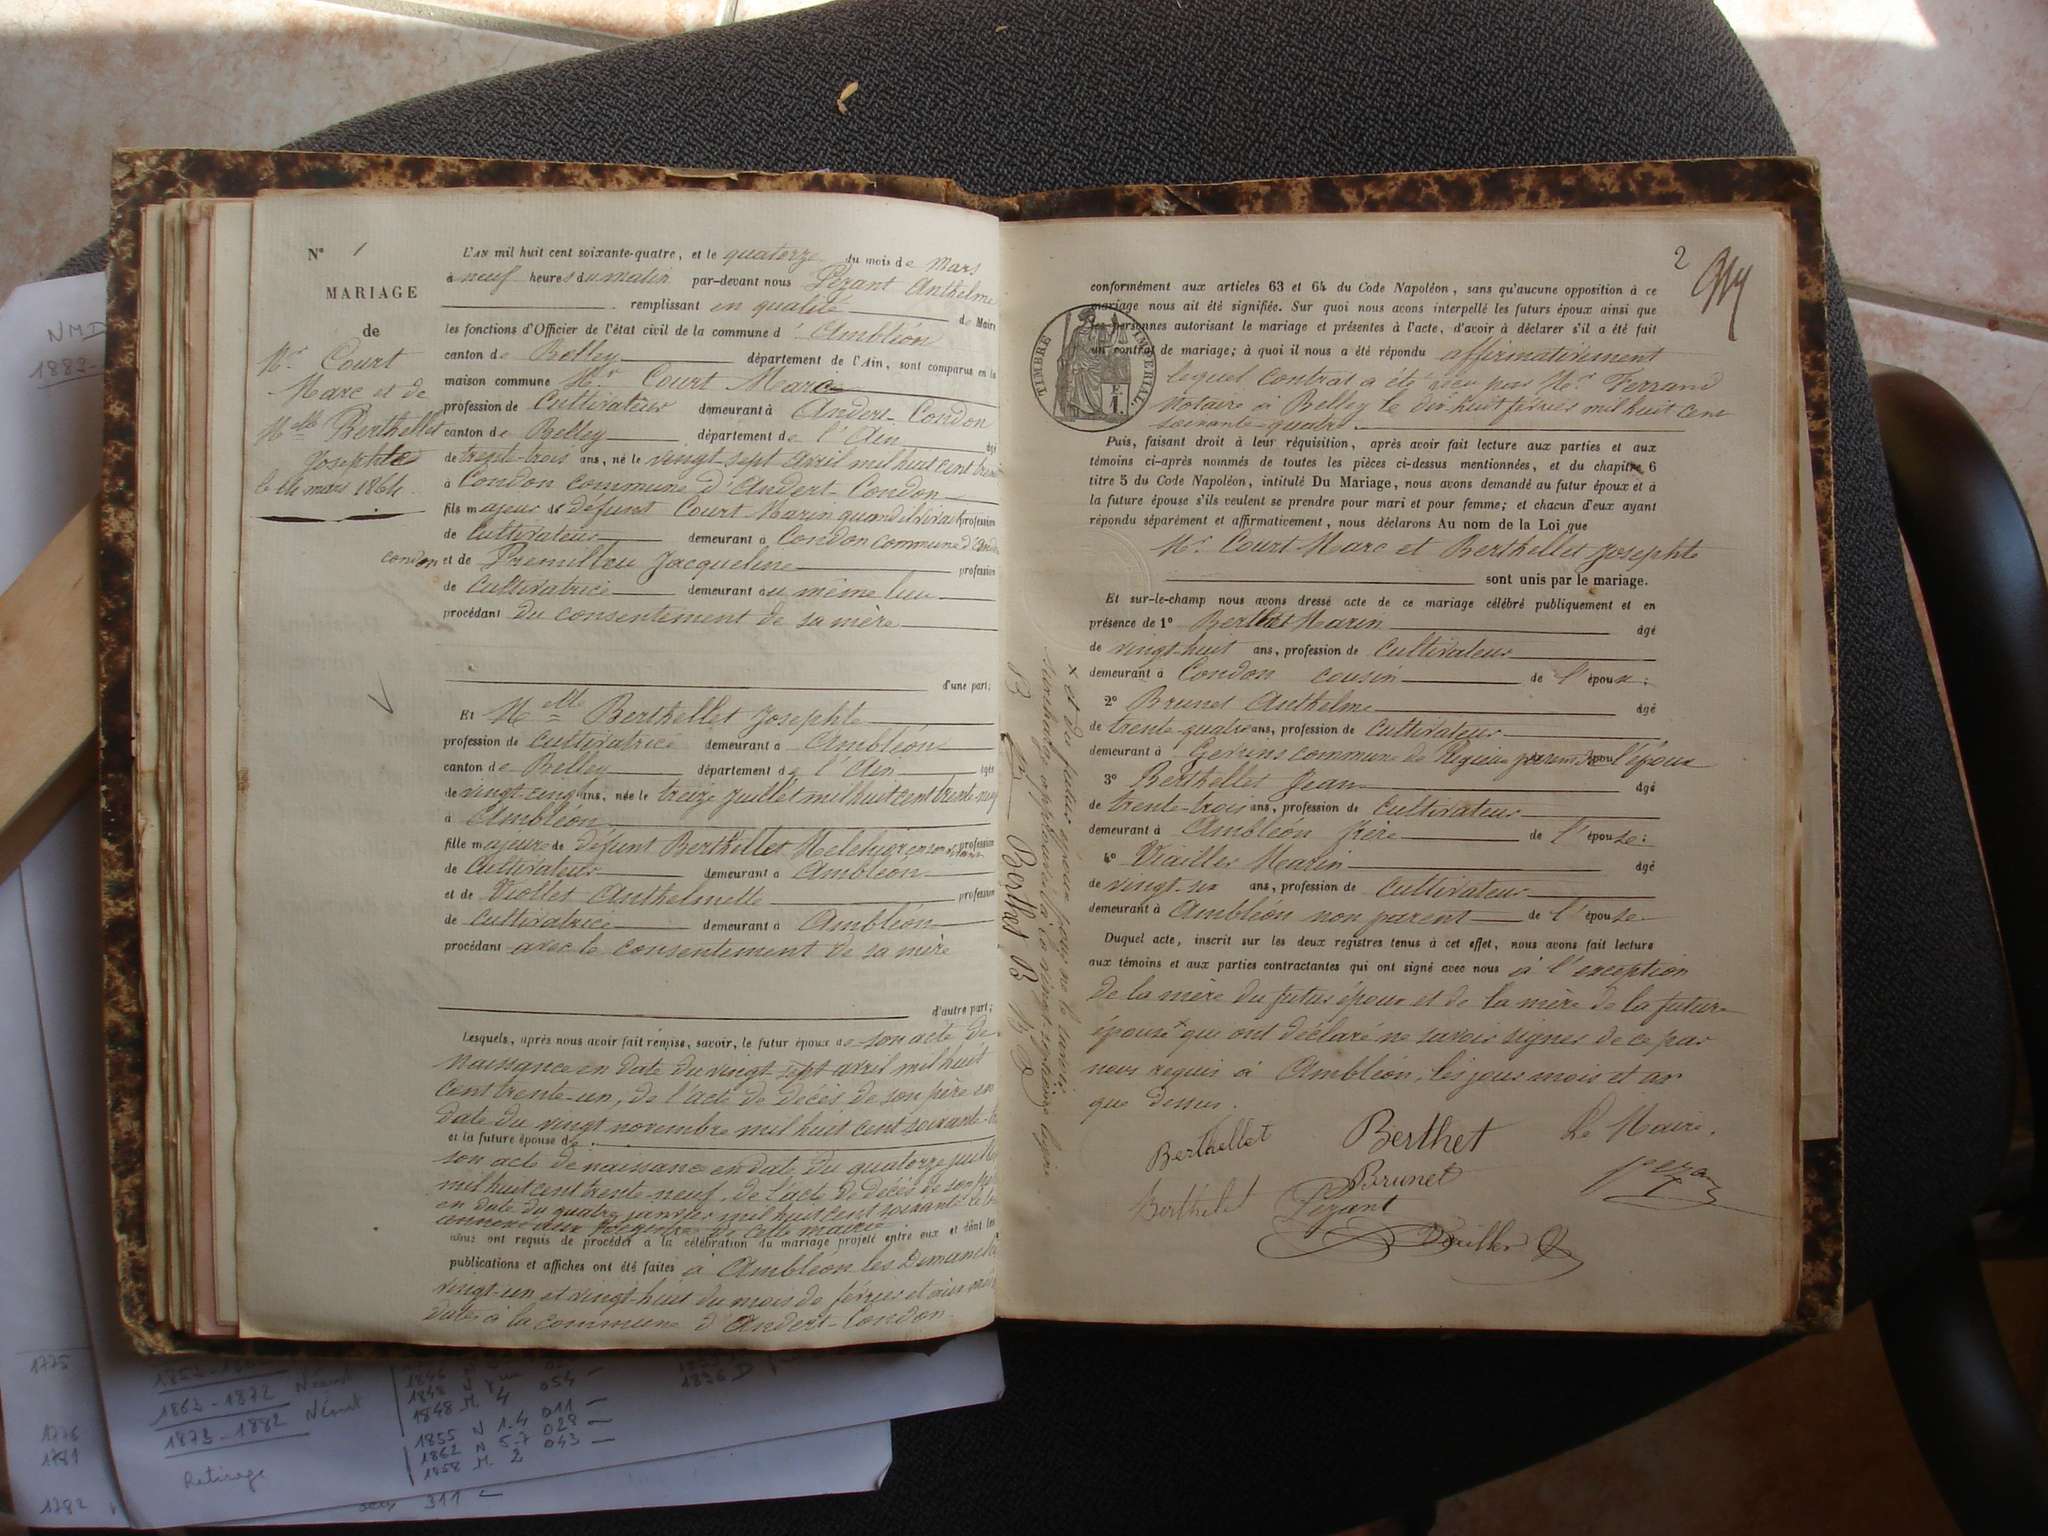 N° 1
MARIAGE
de
Mr Court
Marc et de
Melle Berthellet
Josephte
le 14 mars 1864
L'AN mil huit cent soixante-quatre, et le quatorze du mois de Mars
à neuf heures du matin par-devant nous Pezant Anthelme
remplissant en qualité de Maire
les fonctions d'Officier de l'état civil de la commune d' Ambléon
canton de Belley département de l'Ain, sont comparus en la
maison commune Mr Court Marc
profession de Cultivateur demeurant à Andert-Condon
canton de Belley département de l'Ain âgé
de trente-trois ans, né le vingt-sept avril mil huit cent trente
à Condon commune d'Andert-Condon
fils majeur de défunt Court Marin quand il vivait profession
de Cultivateur demeurant à Condon commune d'Andert
Condon et de Premillieu Jacqueline profession
de Cultivatrice demeurant au même lieu
procédant du consentement de sa mère
d'une part;
Et Melle Berthellet Josephte
profession de Cultivatrice demeurant à Ambléon
canton de Belley département de l'Ain âgée
de vingt-cinq ans, née le treize juillet mil huit cent trente-neuf
à Ambléon
fille majeure de défunt Berthellet Melchior en son vivant profession
de Cultivateur demeurant à Ambléon
et de Viollet Anthelmette profession
de Cultivatrice demeurant à Ambléon
procédant avec le consentement de sa mère
d'autre part;
Lesquels, après nous avoir fait remise, savoir, le futur époux de son acte de
naissance en date du vingt sept avril mil huit
cent trente-un, de l'acte de décès de son père en
date du vingt novembre mil huit cent soixante-
et la future épouse de
son acte de naissance en date du quatorze juillet
mil huit cent trente-neuf, de l'acte de décès de son père
en date du quatre janvier mil huit cent soixante
annexé aux registres de cette mairie
nous ont requis de procéder à la célébration du mariage projeté entre eux et dont les
publications et affiches ont été faites à Ambléon les Dimanches
vingt-un et vingt-huit du mois de février et aux mêmes
dates à la commune d'Andert-Condon
2
conformément aux articles 63 et 64 du Code Napoléon, sans qu'aucune opposition à ce
mariage nous ait été signifiée. Sur quoi nous avons interpellé les futurs époux ainsi que
les personnes autorisant le mariage et présentes à l'acte, d'avoir à déclarer s'il a été fait
un contrat de mariage; à quoi il nous a été répondu affirmativement
lequel contrat a été reçu par Me Ferrand
notaire à Belley le dix huit février mil huit cent
soixante-quatre.
TIMBRE IMPERIAL
F.
1.
Puis, faisant droit à leur réquisition, après avoir fait lecture aux parties et aux
témoins ci-après nommés de toutes les pièces ci-dessus mentionnées, et du chapitre 6
titre 5 du Code Napoléon, intitulé Du Mariage, nous avons demandé au futur époux et à
la future épouse s'ils veulent se prendre pour mari et pour femme; et chacun d'eux ayant
répondu séparément et affirmativement, nous déclarons Au nom de la Loi que
Mr Court Marc et Berthellet Josephte
sont unis par le mariage.
Et sur-le-champ nous avons dressé acte de ce mariage célébré publiquement et en
présence de 1° Berthet Marin âgé
de vingt-huit ans, profession de Cultivateur
demeurant à Condon cousin de l'époux:
2° Brunet Anthelme âgé
de trente-quatre ans, profession de Cultivateur
demeurant à commune de l'époux
3° Berthellet Jean âgé
de trente-trois ans, profession de Cultivateur
demeurant à Ambléon frère de l'épouse:
4° Viailler Marin âgé
de vingt-six ans, profession de Cultivateur
demeurant à Ambléon non parent de l'épouse
Duquel acte, inscrit sur les deux registres tenus à cet effet, nous avons fait lecture
aux témoins et aux parties contractantes qui ont signé avec nous à l'exception
de la mère du futur époux et de la mère de la future
épouse x qui ont déclaré ne savoir signer de ce par
nous requis à Ambléon, les jour mois et an
que dessus.
x et du futur époux pour ne le savoir
Berthet B
Berthellet
Berthet
Le Maire,
Brunet
Pezant
Berthelet
Pezant
Viailler
NMD
1863-1872 Néant
1873-1882 Néant
Retirage
1848 M 4 054
1855 N 1.4 011
1862 N 5-7 028
1858 M 2 043
311
1775
1776
1781
1782